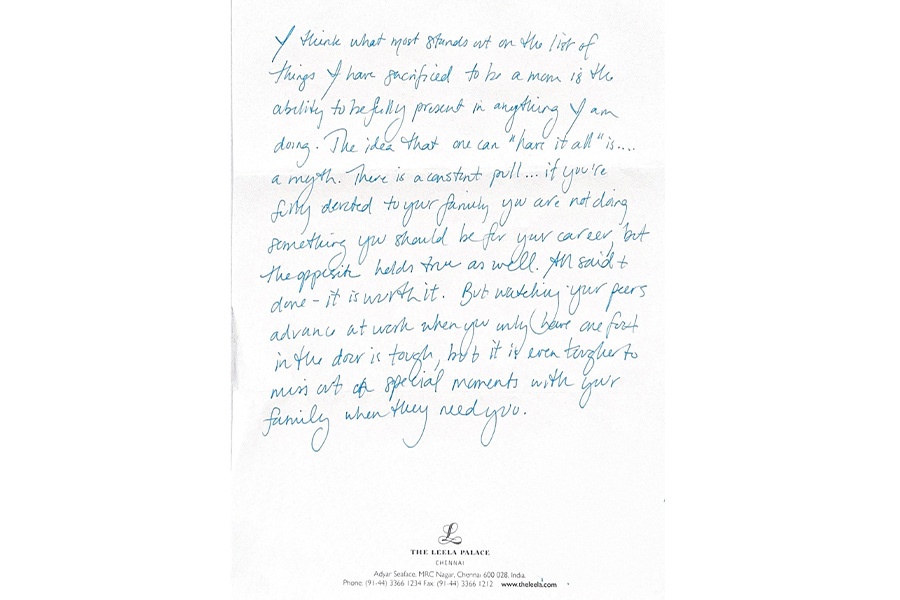 I think what most stands out on the list of
things I have sacrificed to be a mom is the
ability to be fully present in anything I am
doing. The idea that one can "have it all" is....
a myth. There is a constant pull... if you're
fully devoted to your family you are not doing
something you should be for your career, but
the opposite holds true as well. All said +
done - it is worth it. But watching your peers
advance at work when you only have one foot
in the door is tough, but it is even tougher to
miss out on special moments with your
family when they need you.
L
THE LEELA PALACE
CHENNAI
Adyar Seaface, MRC Nagar, Chennai 600 028, India.
Phone: (91-44) 3366 1234 Fax: (91-44) 3366 1212 www.theleela.com